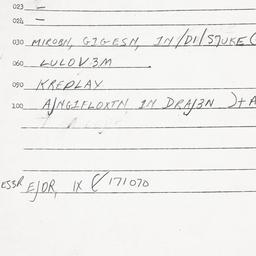 023 –
024 –
030 MIROBN, GIGESN, IN/DI/SJUKE(
060 LULOV3M .
090 KREDLAY
100 AJNGIFLOXTN IN DRAJ3N )+A
ESSR EJDR, IX (/171070